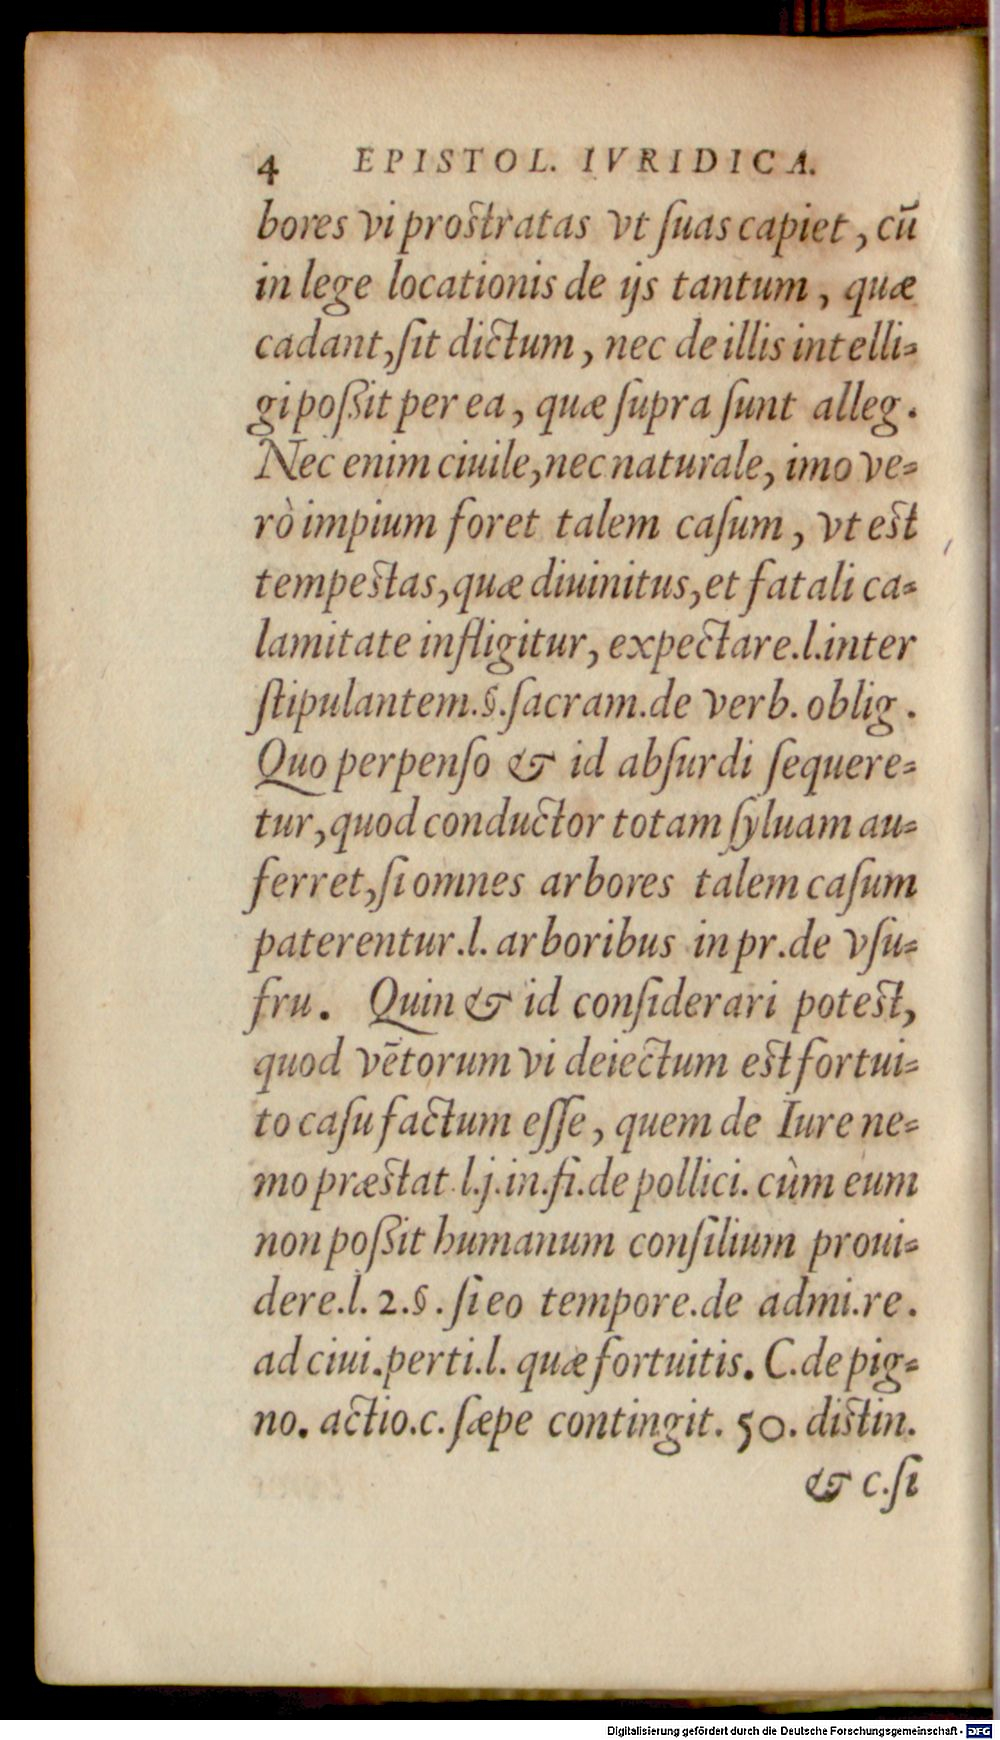 4 EPISTOL. IVRIDICA.
bores vi prostratas vt ſuas capiet, cū
in lege locationis de ijs tantum, quæ
cadant, ſit dictum, nec de illis intelli-
gi poſsit per ea, quæ ſupra ſunt alleg.
Nec enim ciuile, nec naturale, imo ve-
rò impium foret talem caſum, vt est
tempestas, quæ diuinitus, et fatali ca-
lamitate infligitur, expectare.l.inter
ſtipulantem.§.ſacram.de verb. oblig.
Quo perpenſo & id abſurdi ſequere-
tur, quod conductor totam ſyluam au-
ferret, ſi omnes arbores talem caſum
paterentur.l. arboribus in pr.de vſu-
fru. Quin & id conſiderari potest,
quod vētorum vi deiectum est fortui-
to caſu factum eſſe, quem de Iure ne-
mo præstat l.j.in.fi.de pollici. cùm eum
non poſsit humanum conſilium proui-
dere.l. 2.§. ſi eo tempore.de admi.re.
ad ciui.perti.l. quæ fortuitis. C.de pig-
no. actio.c. ſæpe contingit. 50. distin.
& c.ſi
Digitalisierung gefördert durch die Deutsche Forschungsgemeinschaft - DFG